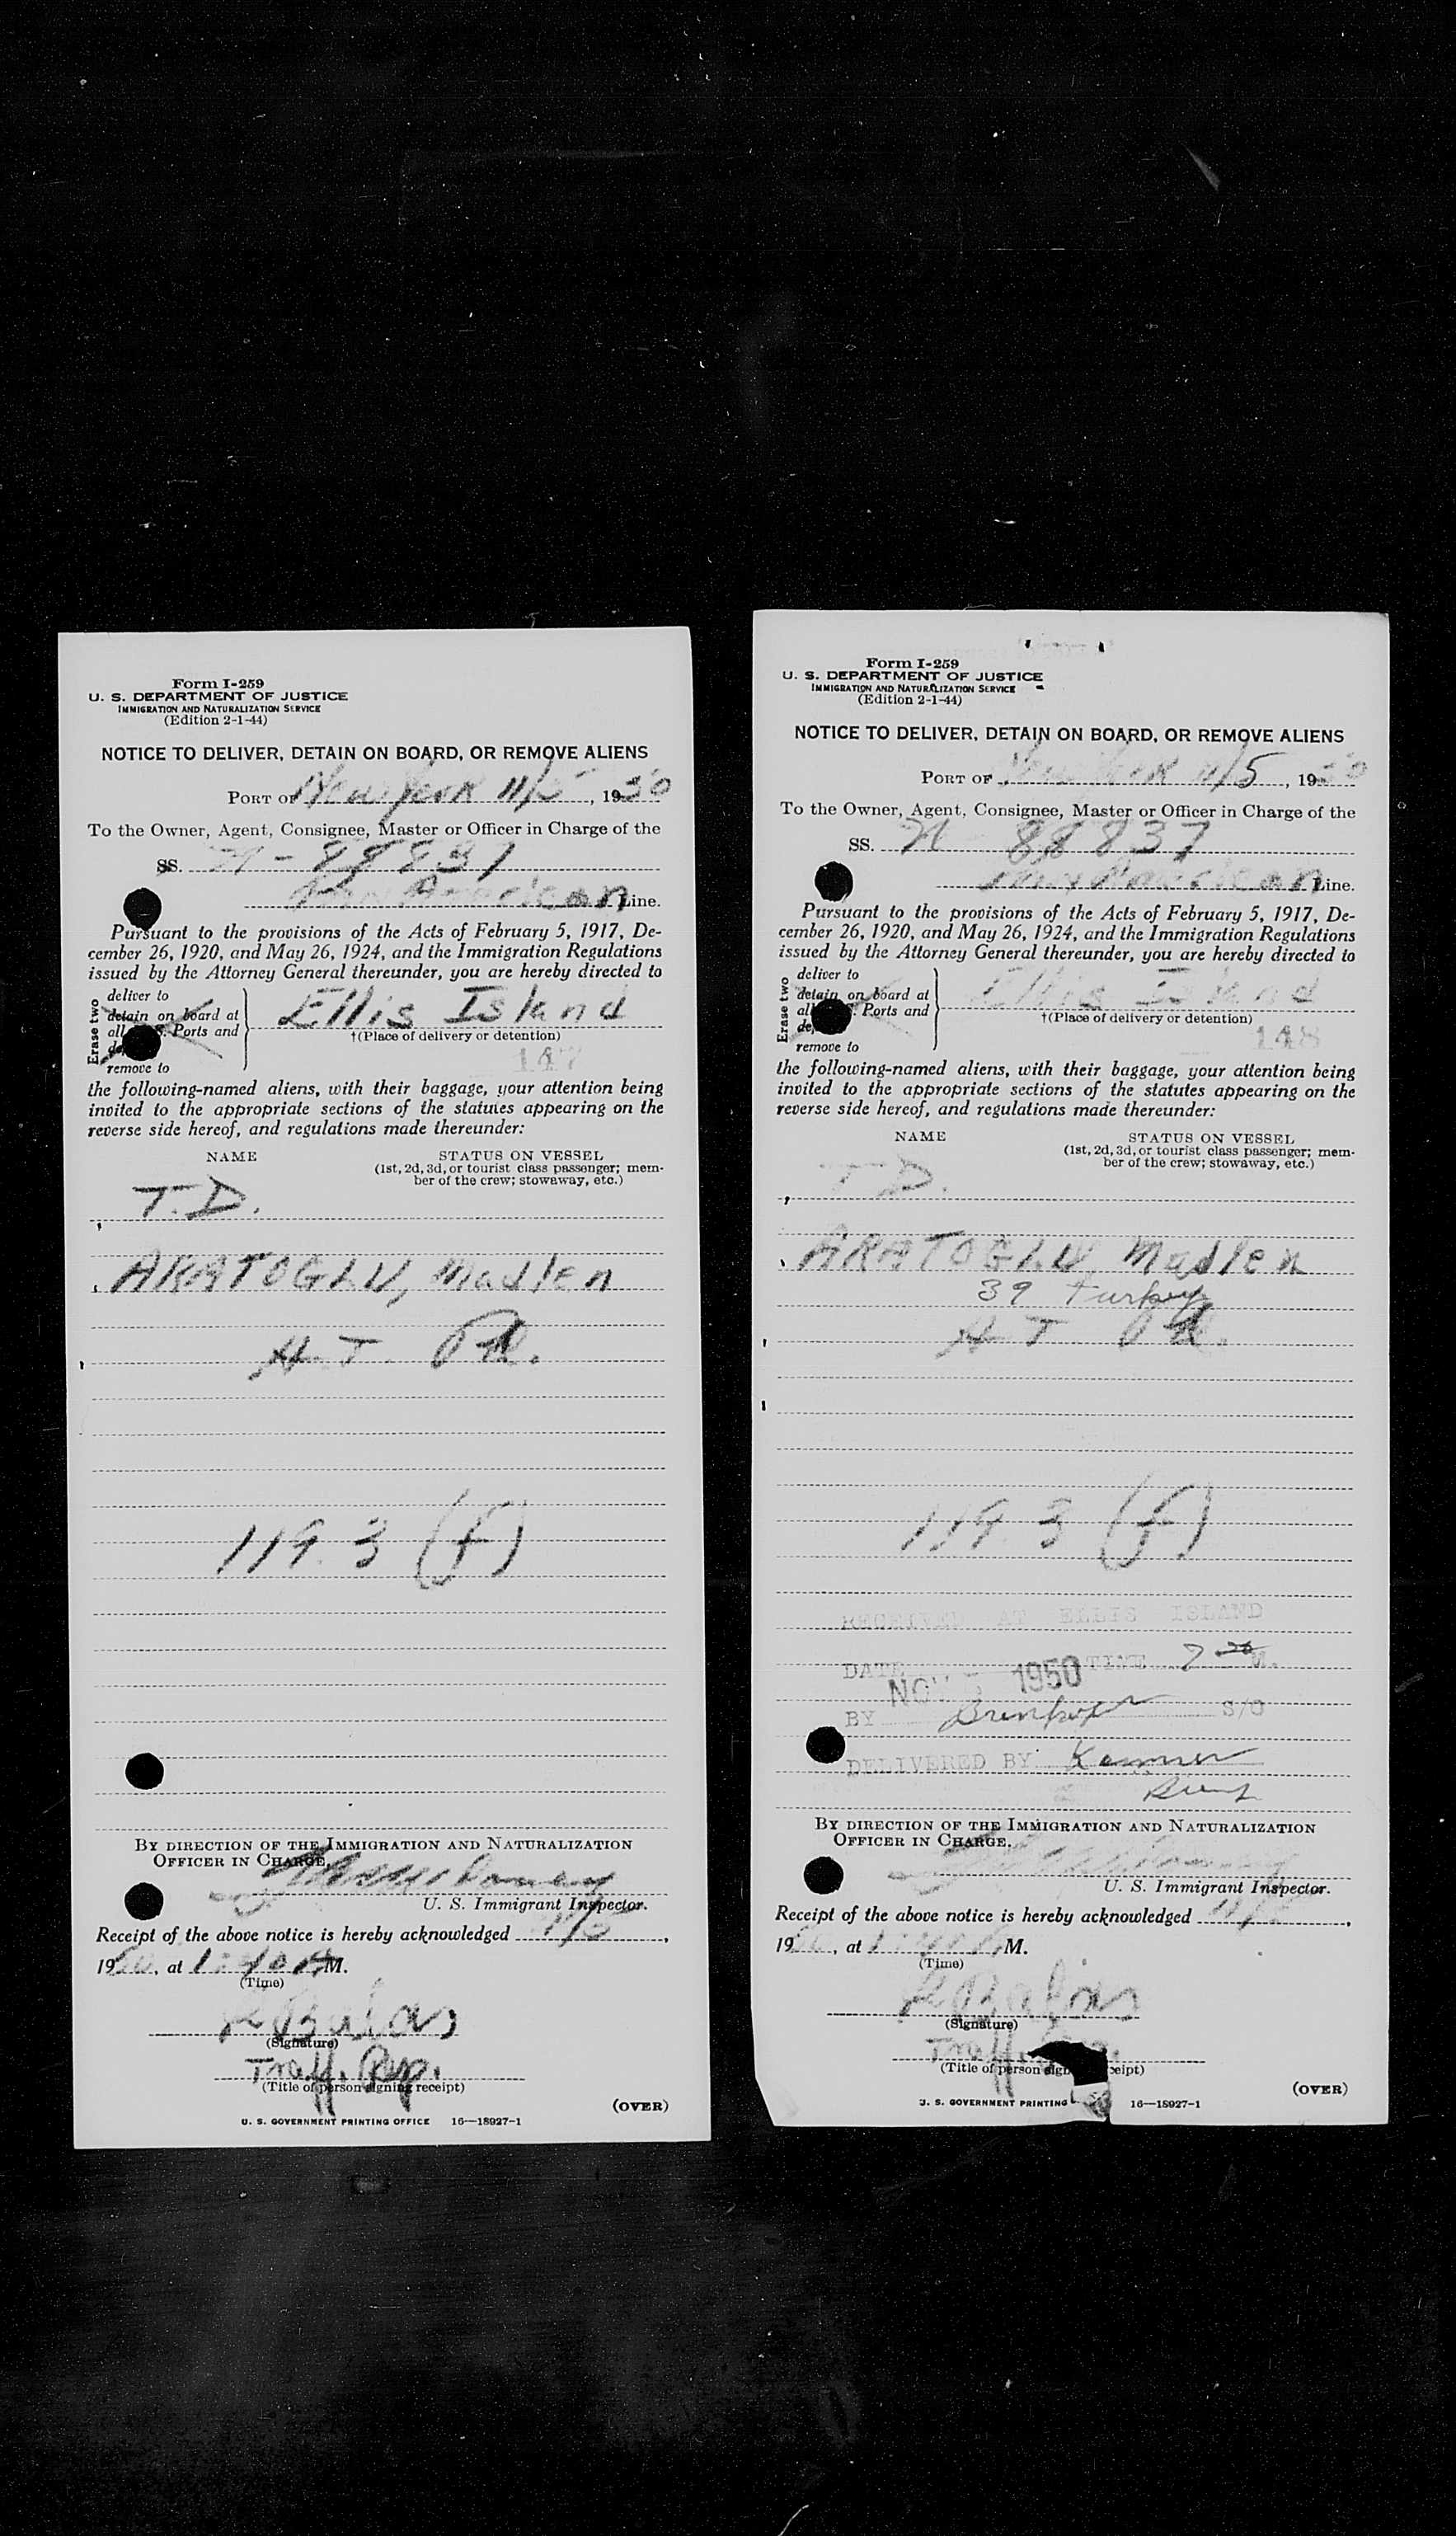 Form I-259
U. S. DEPARTMENT OF JUSTICE
IMMIGRATION AND NATURALIZATION SERVICE
(Edition 2-1-44)
NOTICE TO DELIVER, DETAIN ON BOARD, OR REMOVE ALIENS
PORT OF New York 11/5, 1950
To the Owner, Agent, Consignee, Master or Officer in Charge of the
SS. N-88837
Pan American Line.
Pursuant to the provisions of the Acts of February 5, 1917, De-
cember 26, 1920, and May 26, 1924, and the Immigration Regulations
issued by the Attorney General thereunder, you are hereby directed to
Erase two
deliver to
detain on board at
all Ports and
remove to
Ellis Island
†(Place of delivery or detention)
147
the following-named aliens, with their baggage, your attention being
invited to the appropriate sections of the statutes appearing on the
reverse side hereof, and regulations made thereunder:
NAME
STATUS ON VESSEL
(1st, 2d, 3d, or tourist class passenger; mem-
ber of the crew; stowaway, etc.)
T.D.
ARATOGLU, Madlen
119.3 (f)
BY DIRECTION OF THE IMMIGRATION AND NATURALIZATION
OFFICER IN CHARGE.
U. S. Immigrant Inspector.
Receipt of the above notice is hereby acknowledged 11/5,
1950, at 1:40 A M.
(Time)
(Signature)
Traff. Rep.
(Title of person signing receipt)
(OVER)
U. S. GOVERNMENT PRINTING OFFICE 16—18927-1
Form I-259
U. S. DEPARTMENT OF JUSTICE
IMMIGRATION AND NATURALIZATION SERVICE
(Edition 2-1-44)
NOTICE TO DELIVER, DETAIN ON BOARD, OR REMOVE ALIENS
PORT OF New York 11/5, 1950
To the Owner, Agent, Consignee, Master or Officer in Charge of the
SS. N 88837
Pan American Line.
Pursuant to the provisions of the Acts of February 5, 1917, De-
cember 26, 1920, and May 26, 1924, and the Immigration Regulations
issued by the Attorney General thereunder, you are hereby directed to
Erase two
deliver to
detain on board at
all Ports and
remove to
Ellis Island
†(Place of delivery or detention)
148
the following-named aliens, with their baggage, your attention being
invited to the appropriate sections of the statutes appearing on the
reverse side hereof, and regulations made thereunder:
NAME
STATUS ON VESSEL
(1st, 2d, 3d, or tourist class passenger; mem-
ber of the crew; stowaway, etc.)
T.D.
ARATOGLU Madlen
39 Turkey
119.3 (f)
RECEIVED AT ELLIS ISLAND
DATE NOV 5 1950 TIME M.
BY S/O
DELIVERED BY
BY DIRECTION OF THE IMMIGRATION AND NATURALIZATION
OFFICER IN CHARGE.
U. S. Immigrant Inspector.
Receipt of the above notice is hereby acknowledged 11/5,
1950, at 1:40 A M.
(Time)
(Signature)
Traff.
(Title of person receipt)
(OVER)
U. S. GOVERNMENT PRINTING 16—18927-1